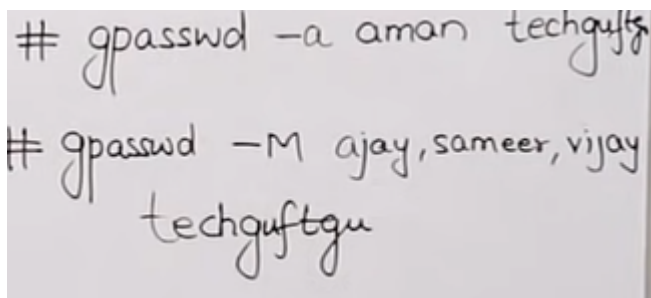 # gpasswd -a aman techguftg
# gpasswd -M ajay, sameer, vijay
techguftgu